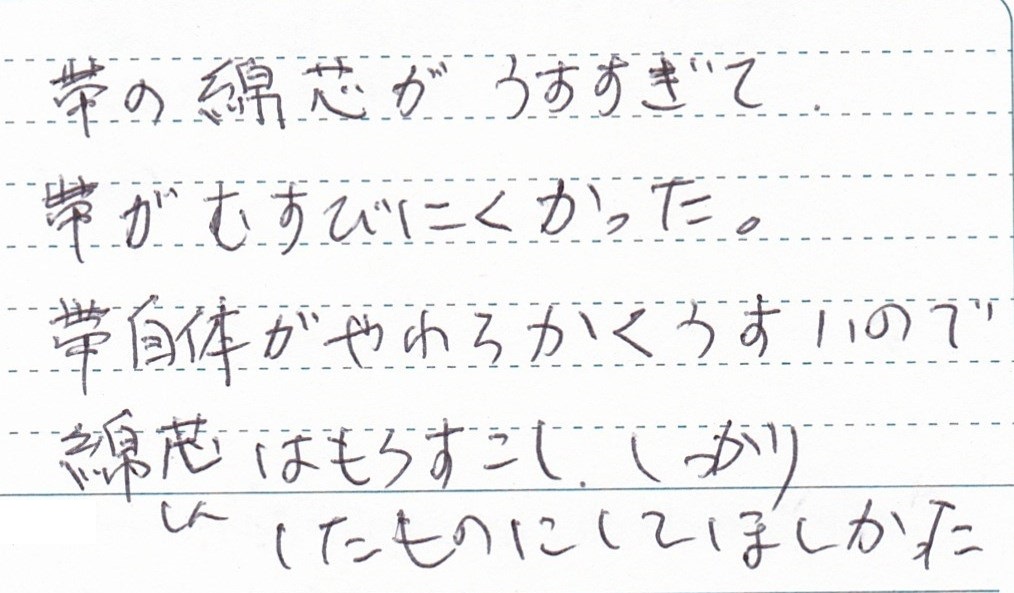 帯の綿芯がうすすぎて.
帯がむすびにくかった。
帯自体がやわらかくうすいので
綿芯はもうすこし.しっかり
しん
したものにしてほしかった